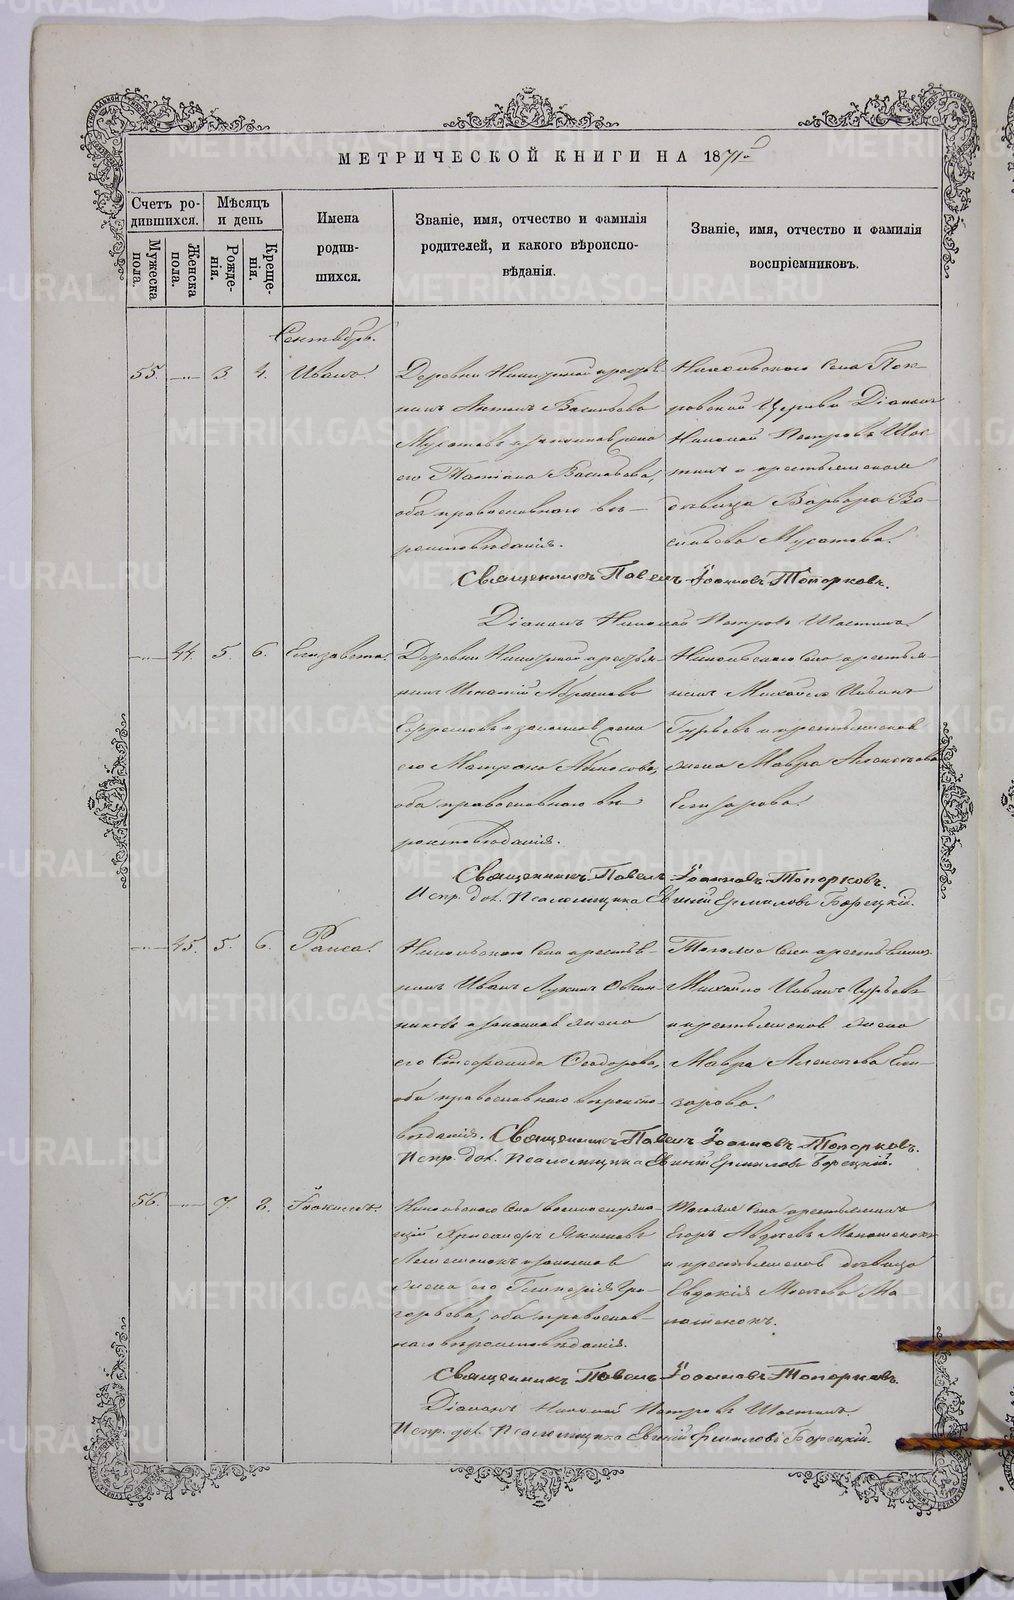 МЕТРИЧЕСКОЙ КНИГИ НА 1871й
Счетъ ро-
дившихся.
Мѣсяцъ
и день
Мужеска
пола.
Женска
пола.
Рожде-
нія.
Креще-
нія.
Имена
родив-
шихся.
Званіе, имя, отчество и фамилія
родителей, и какого вѣроиспо-
вѣданія.
Званіе, имя, отчество и фамилія
воспріемниковъ.
Сентябрь.
55. — 3. 4. Иванъ.
Деревни
Антонъ Васильевъ
Мусатовъ и законная жена
его Татіана Васильева,
оба православнаго вѣ-
роисповѣданія.
Никольскаго Села Пок-
ровской Церкви Діаконъ
Николай Петровъ Шас-
тинъ и крестьянская
дѣвица Варвара Ва-
сильева Мусатова.
Священникъ Павелъ Іоанновъ Топорковъ.
Діаконъ Николай Петровъ Шастинъ.
— 44. 5. 6. Елизавета.
Деревни крестья-
нинъ Игнатій Абрамовъ
Ефремовъ и законная жена
его Матрона
оба православнаго вѣ-
роисповѣданія.
Никольскаго Села крестья-
нинъ Михайло Ивановъ
Гурьевъ и крестьянская
жена Мавра Алексѣева
Елизарова.
Священникъ Павелъ Іоанновъ Топорковъ.
Испр. дол. Псаломщика Евгений Ермиловъ Борецкій.
— 45. 5. 6. Раиса.
Никольскаго Села крестья-
нинъ Иванъ Лукинъ Овчин-
никовъ и законная жена
его Стефанида Ѳеодорова,
оба православнаго вѣроиспо-
вѣданія.
Тогоже Села крестьянинъ
Михайло Ивановъ Гурьевъ
и крестьянская жена
Мавра Алексѣева Ели-
зарова.
Священникъ Павелъ Іоанновъ Топорковъ.
Испр. дол. Псаломщика Евгений Ермиловъ Борецкій.
56. — 7. 8. Іоакимъ.
Никольскаго Села
законная
жена его Гри-
горьева, оба православ-
наго вѣроисповѣданія.
Тогоже Села крестьянинъ
Егоръ Авдѣевъ
и крестьянская дѣвица
Евдокія
Священникъ Павелъ Іоанновъ Топорковъ.
Діаконъ Николай Петровъ Шастинъ.
Испр. дол. Псаломщика Евгений Ермиловъ Борецкій.
METRIKI.GASO-URAL.RU